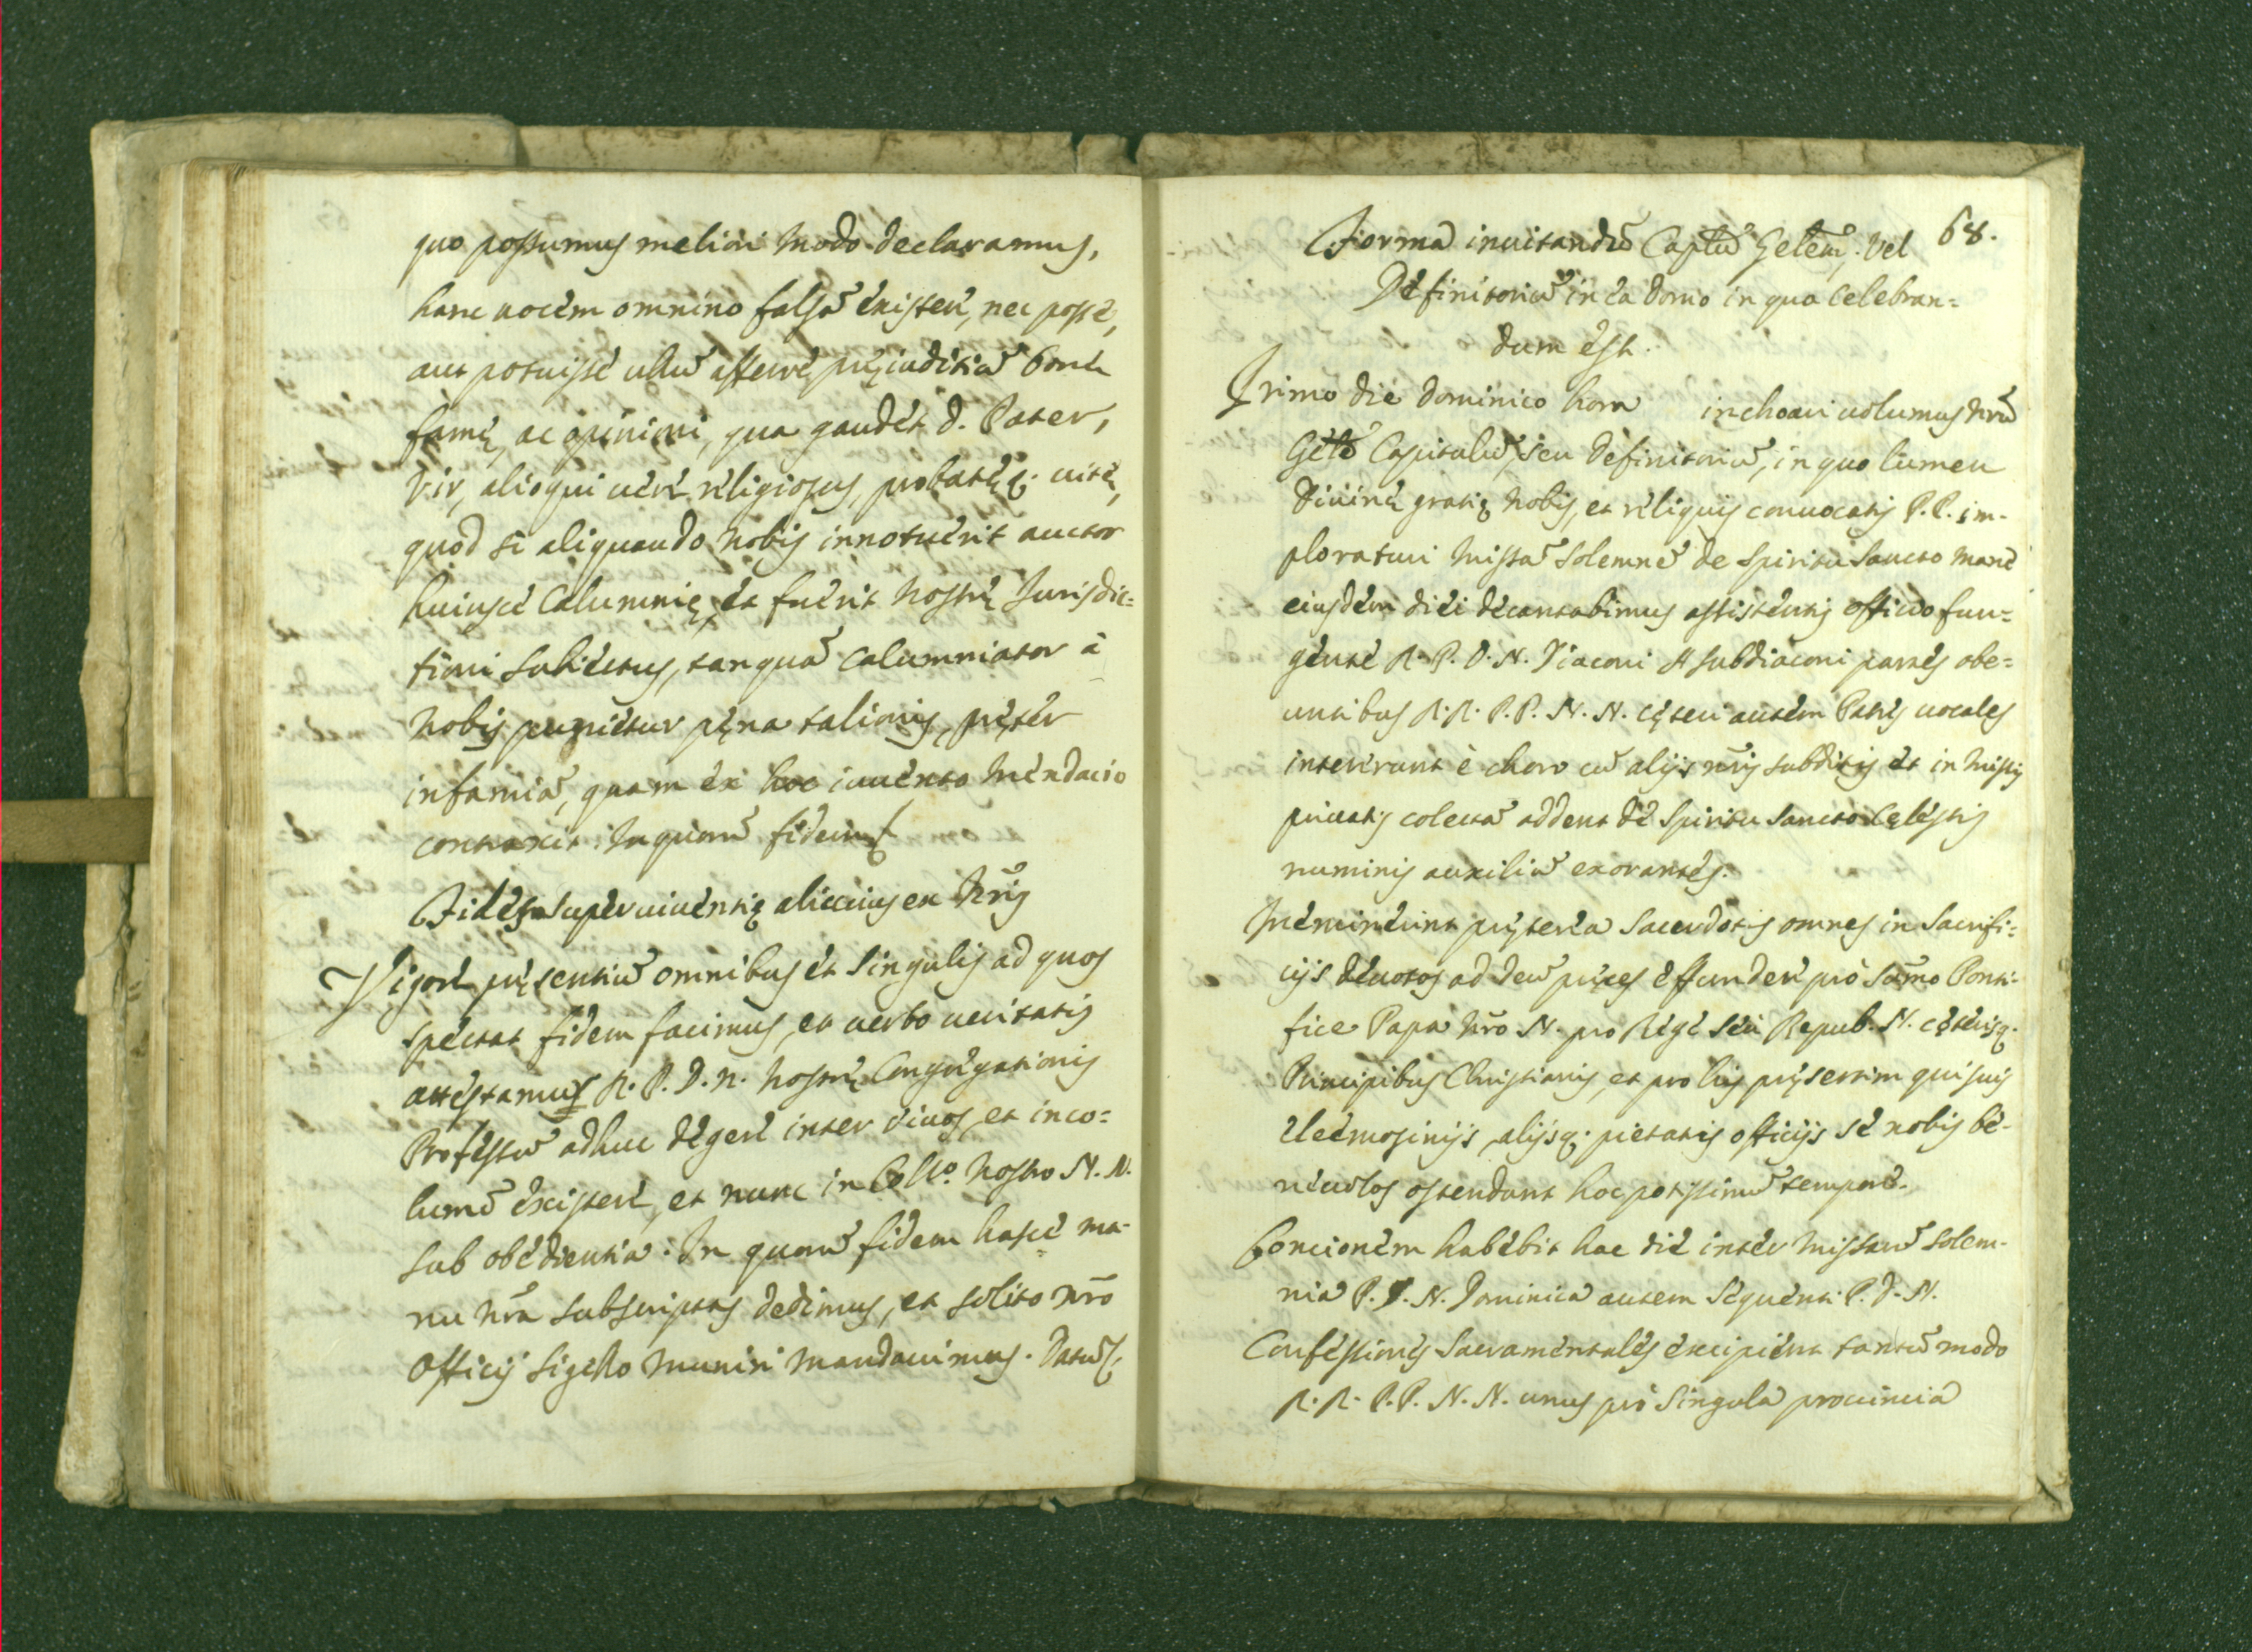 quo possumus meliori modo declaramus,
hanc uocem omnino falsã existere, nec posse,
aut potuisse ullũ afferre pręiuditiũ bonę
famę, ac opinioni, qua gaudet d. Pater,
Vir, alioqui uerè religiosus, probatęq; uitę,
quod si aliquando nobis innotuerit auctor
huiusce Calumnię, et fuerit nostrę Jurisdic=
tioni subiectus, tanquã calumniator à
nobis punietur pęna talionis, pręter
infamiã, quam ex hoc inuento mendacio
contraxit. In quorũ fidem
Fides superuiuentię alicuius ex Nr̃is
Vigore pręsentiũ omnibus et singulis ad quos
spectat fidem facimus, et uerbo ueritatis
attestamus R. P. D. N. nostrę Congregationis
Professũ adhuc degere inter uiuos, et inco=
lumẽ existere, et nunc in Collo. nostro N. N.
sub obedientia. In quorũ fidem hasce ma-
nu nr̃a subscriptas dedimus, et solito nr̃o
Officij sigillo muniri mandauimus. Datũ
Forma inuitandi Caplũ Gelem; Vel 68.
Definitoriũ in ea domo in qua celebran=
dum est.
Primo die Dominico hora inchoari uolumus nr̃ũ
Gele Capitulũ, seu Definitoriũ, in quo lumen
Diuinę gratię nobis, et reliquis conuocatis P.P. im-
ploraturi missã solemnẽ de Spiritu Sancto mane
eiusdem diei decantabimus assistentis officio fun=
gente R. P. D. N. Diaconi et subdiaconi partes obe=
untibus R.R. P.P. N. N. cęteri autem Patres uocales
intererunt è choro cũ alijs nr̃is subditis et in missis
priuatis colectã addent de Spiritu Sancto Cęlestis
numinis auxiliũ exorantes.
Meminerint pręterea Sacerdotes omnes in Sacrifi=
cijs deuotas ad Deũ pręces effundere pro Sũmo Ponti-
fice Papa nr̃o N. pro Rege seu Repub. N. cęterisq.
Principibus Christianis, et pro his pręsertim qui suis
eleemosinijs, alijsq; pietatis officijs se nobis be-
neuolos ostendunt hoc potissimũ tempore.
Concionem habebit hac die inter missarũ solem-
nia P. D. N. Dominica autem sequenti P. D. N.
Confessiones Sacramentales excipient tantũ modo
R. R. P.P. N. N. unus pro singula prouincia